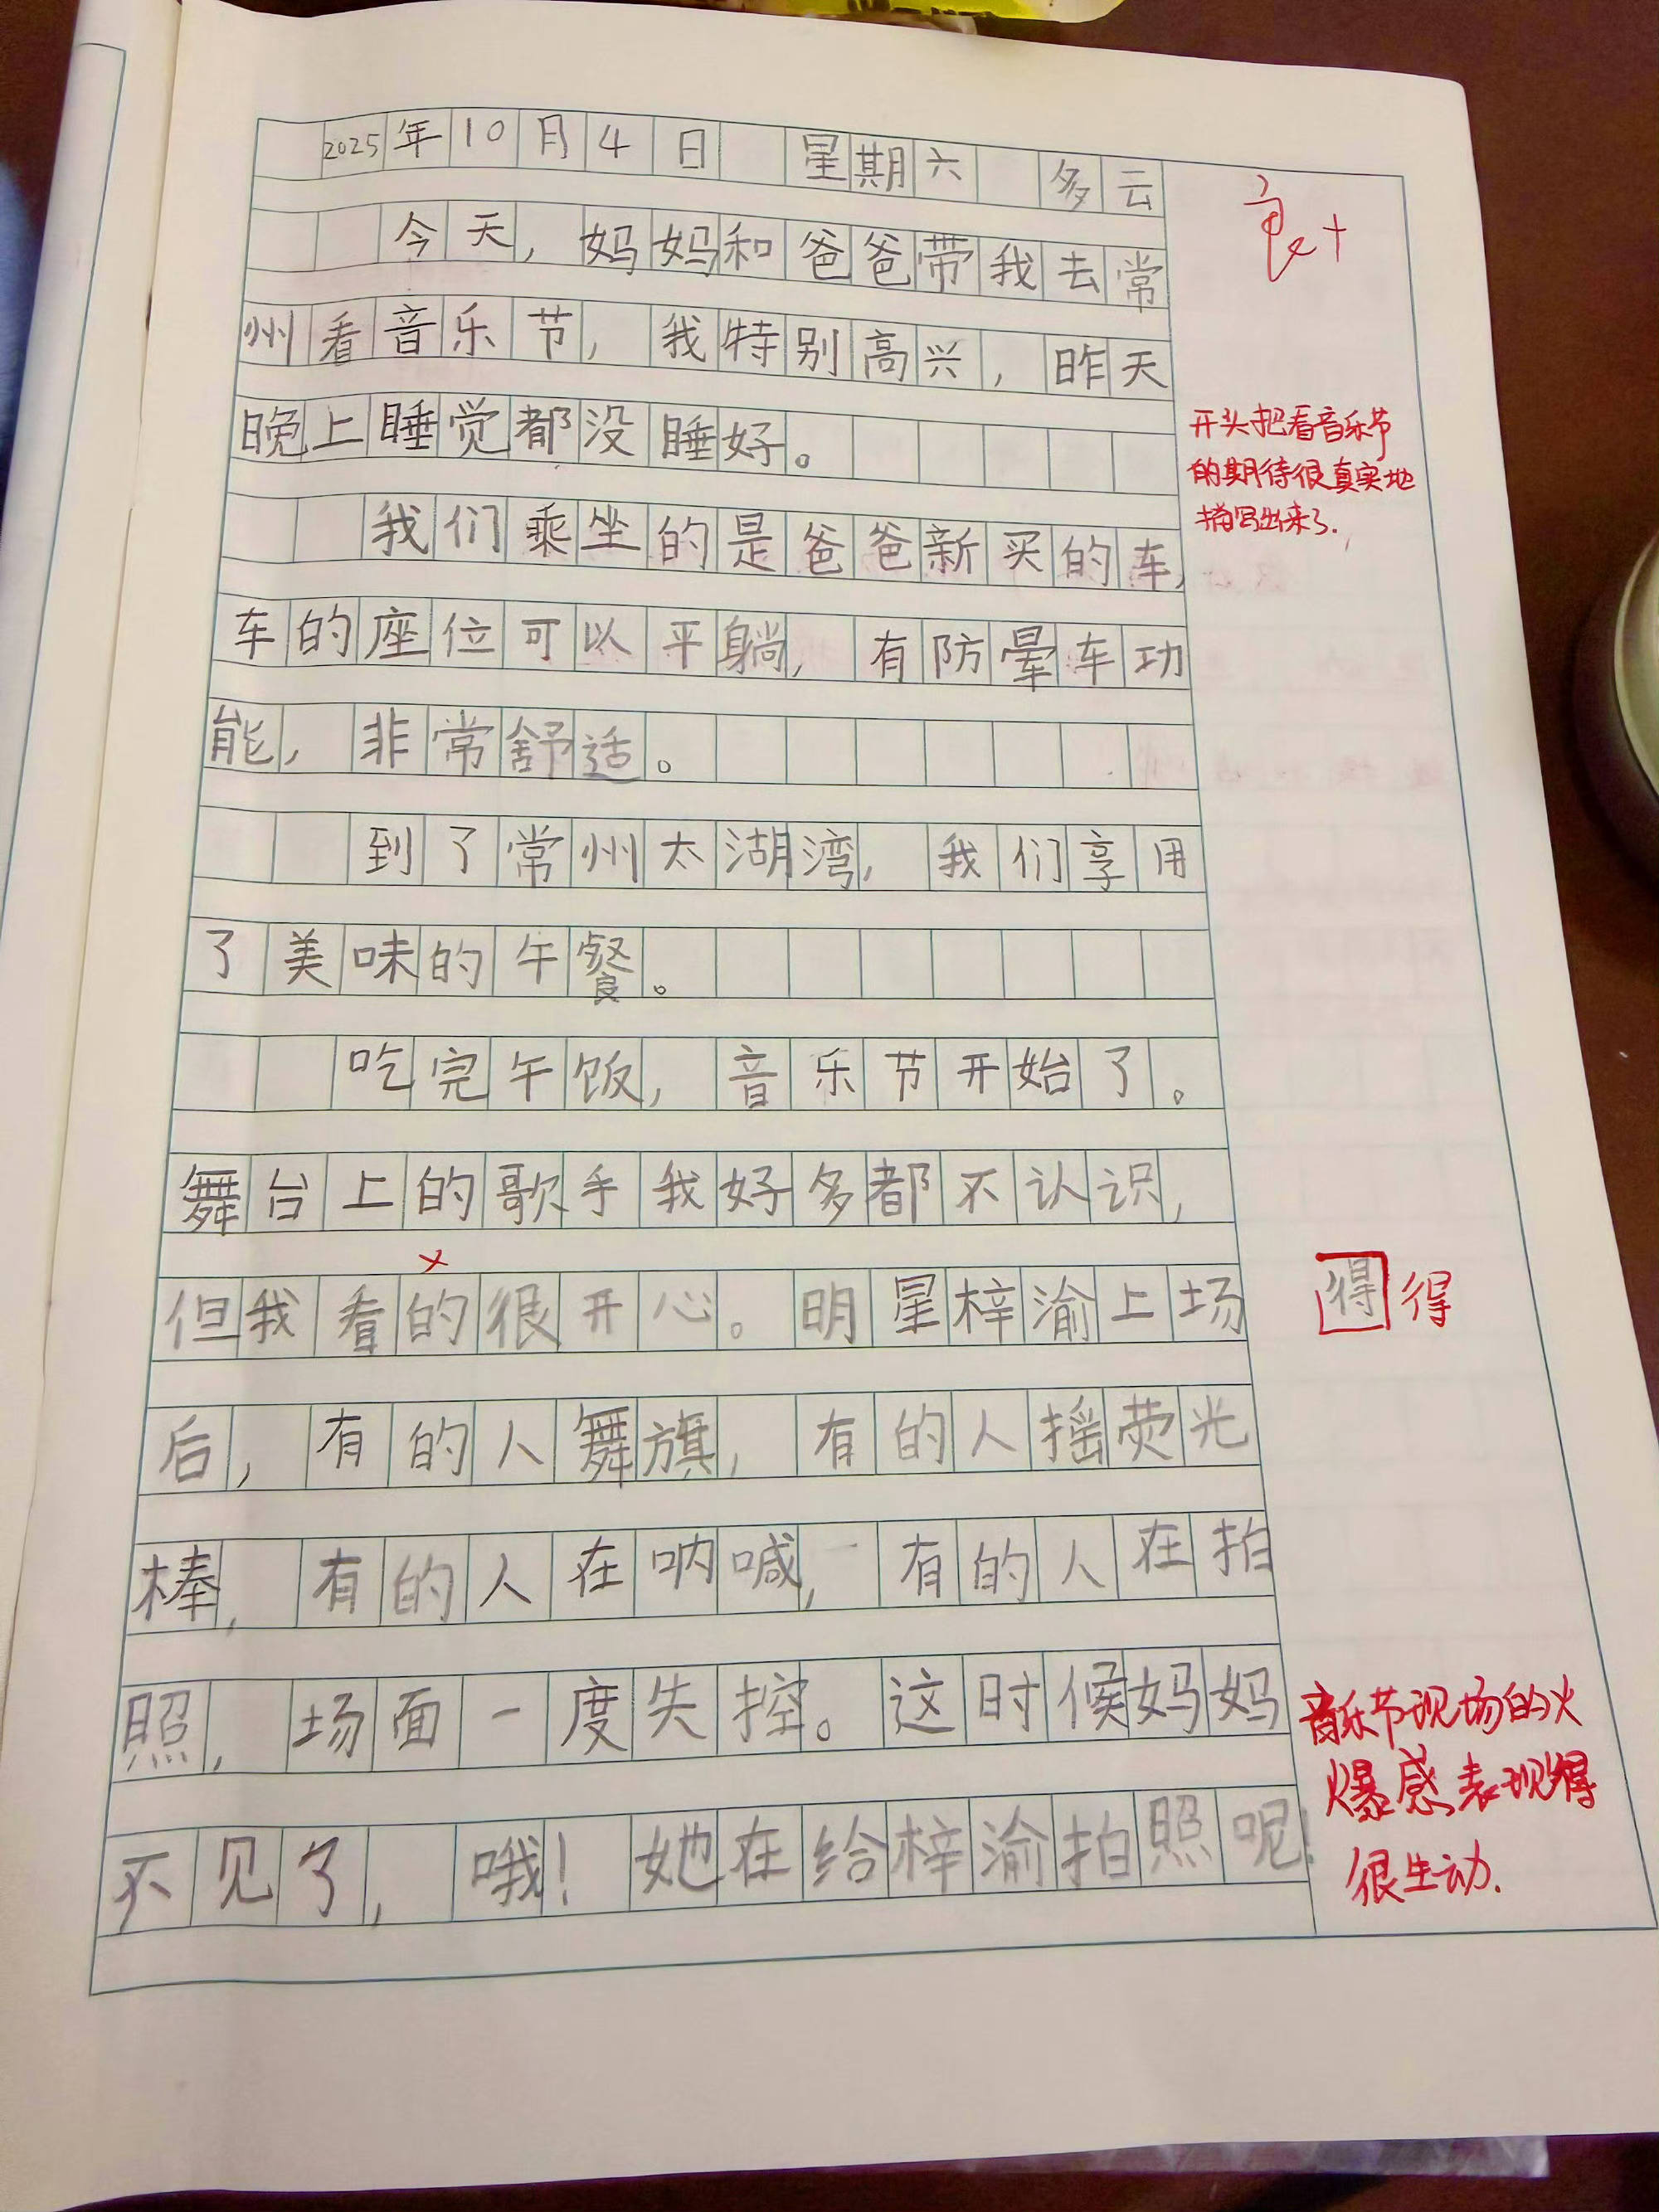 2025年10月4日 星期六 多云
今天，妈妈和爸爸带我去常
州看音乐节，我特别高兴，昨天
晚上睡觉都没睡好。
开头把看音乐节
的期待很真实地
描写出来了.
我们乘坐的是爸爸新买的车，
车的座位可以平躺，有防晕车功
能，非常舒适。
到了常州太湖湾，我们享用
了美味的午餐。
吃完午饭，音乐节开始了。
舞台上的歌手我好多都不认识，
但我看的很开心。明星梓渝上场
得 得
后，有的人舞旗，有的人摇荧光
棒，有的人在呐喊，有的人在拍
照，场面一度失控。这时候妈妈
不见了，哦！她在给梓渝拍照呢！
音乐节现场的火
爆感表现得
很生动.